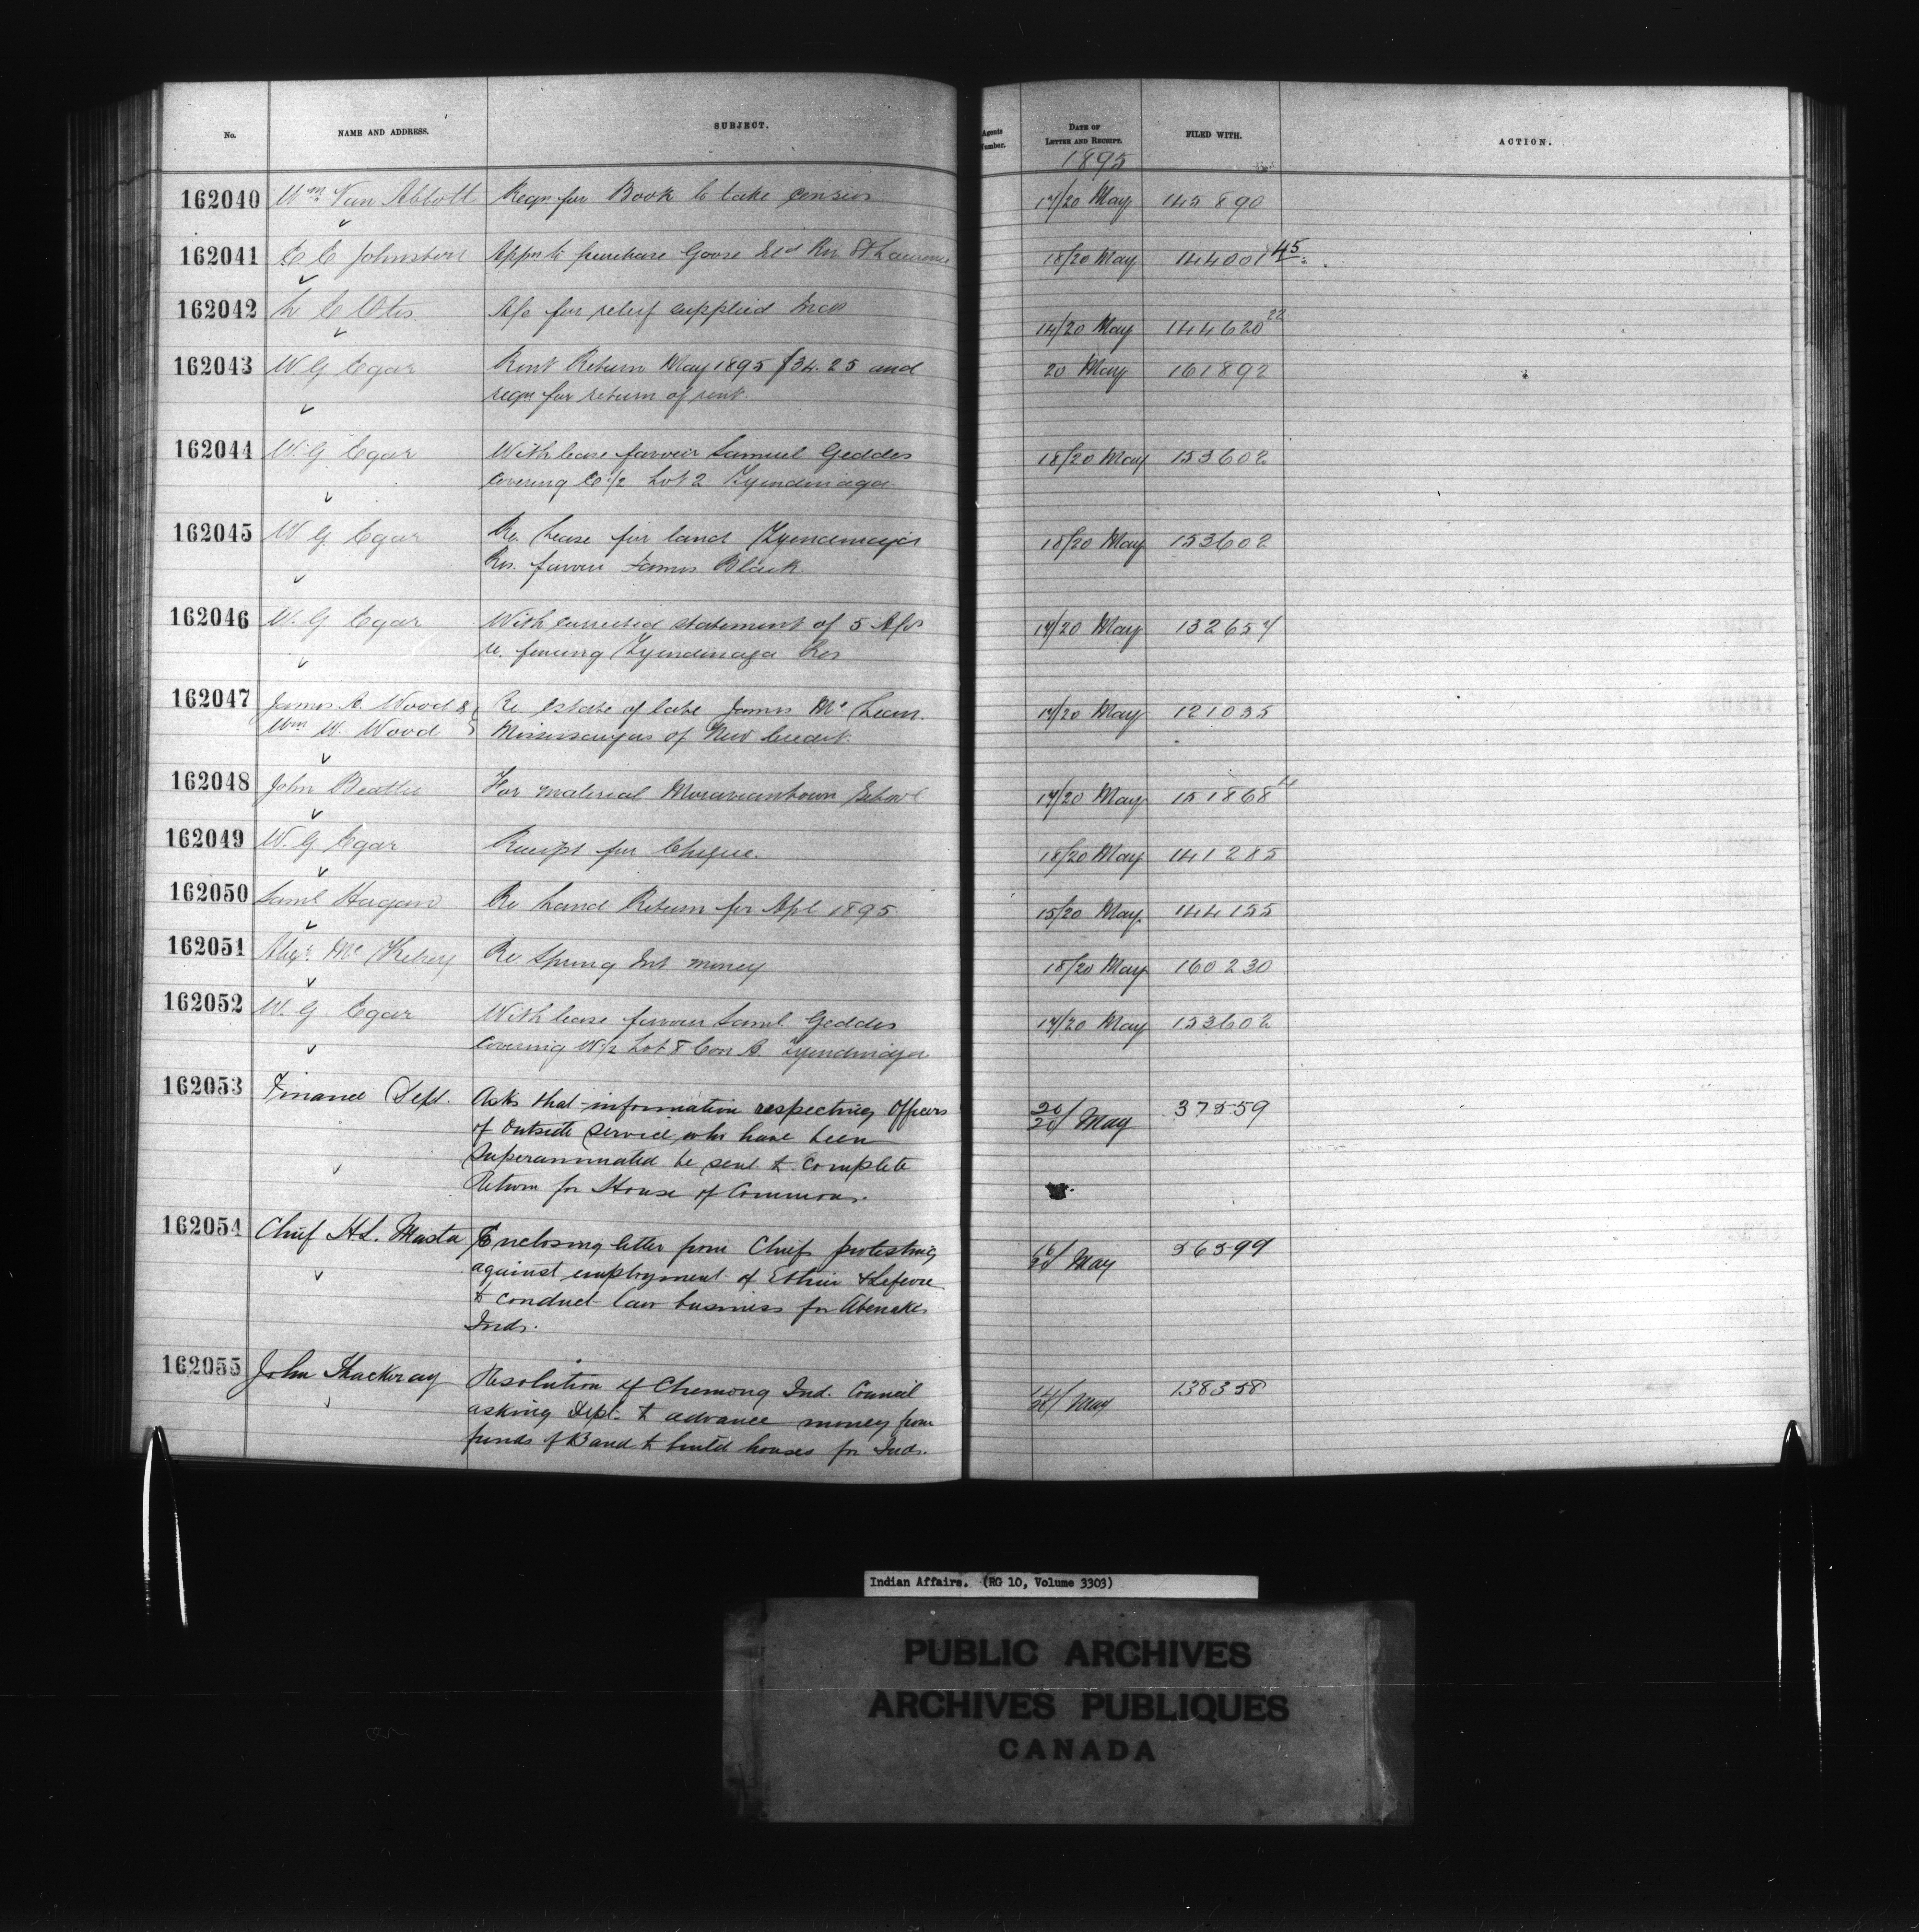 No. NAME AND ADDRESS. SUBJECT. Agents Number. DATE OF LETTER AND RECEIPT. FILED WITH. ACTION.
1895
162040 Wm Van Abbott Reqn for Book to take Census 17/20 May 145890
162041 C C Johnston Appn to purchase Goose Isld Riv St Lawrence 18/20 May 144001 45
162042 C Otis A/c for relief supplied Inds 14/20 May 144620 22
162043 W G Egar Rent Return May 1895 $34.25 and 20 May 161892
reqn for return of rent.
162044 W. G Egar With lease favour Samuel Geddes 18/20 May 153602
covering E 1/2 Lot 2 Tyendinaga
162045 W G Egar Re Lease for land Tyendinaga 18/20 May 153602
Res. favour James Black
162046 W. G Egar With corrected statement of 5 A/cs 17/20 May 132657
re. fencing Tyendinaga Res
162047 James A. Wood & Re Estate of late James Mc Lean. 17/20 May 121035
Wm W. Wood Mississaugas of New Credit.
162048 John Beattie For material Moraviantown School 17/20 May 151868 14
162049 W. G Egar Receipt for Cheque. 18/20 May 141285
162050 Saml Hagan Re Land Return for Apl 1895 15/20 May 144155
162051 Alexr Mc Kelvey Re Spring Int money 18/20 May 160230
162052 W. G Egar With lease favour Saml. Geddes 17/20 May 153602
covering W 1/2 Lot 8 Con A. Tyendinaga
162053 Finance Dept. Asks that information respecting Officers 20/20 May 37559
of Outside Service who have been
Superannuated be sent to complete
Return for House of Commons.
162054 Chief H.L. Masta Enclosing letter from Chiefs protesting 16/20 May 56599
against employment of Ethier & Lefevre
to conduct law business for Abenakis
Inds.
162055 John Thackeray Resolution of Chemong Ind. Council 14/20 May 138358
asking Dept. to advance money from
funds of Band to build houses for Inds.
Indian Affairs. (RG 10, Volume 3303)
PUBLIC ARCHIVES
ARCHIVES PUBLIQUES
CANADA